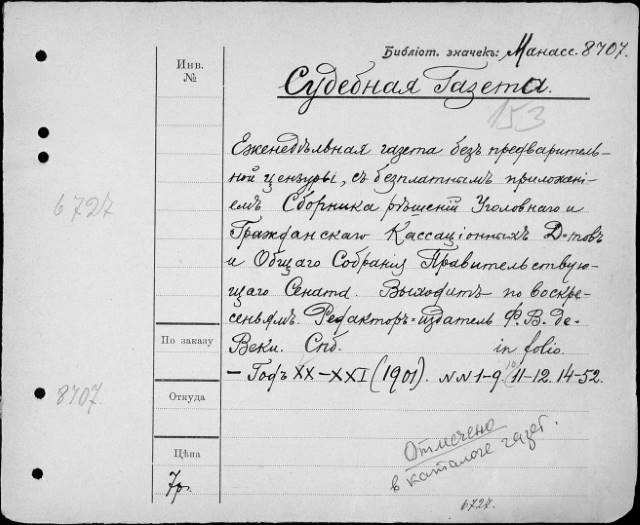 Библіот. значекъ: Манасс. 8707.
Инв.
№
Судебная Газета.
153
Еженедѣльная газета безъ предваритель-
ной цензуры, съ безплатнымъ приложені-
емъ Сборника рѣшеній Уголовнаго и
Гражданскаго Кассаціонныхъ Д-товъ
и Общаго Собранія Правительствую-
щаго Сената. Выходитъ по воскре-
сеньямъ. Редакторъ-издатель Ф. В. де-
Веки. Спб. in folio.
— Годъ XX–XXI (1901). NN 1-9. 11-12. 14-52.
6727
По заказу
8707.
Откуда
Цѣна
7р.
Отмечено
в каталоге газет.
6727.